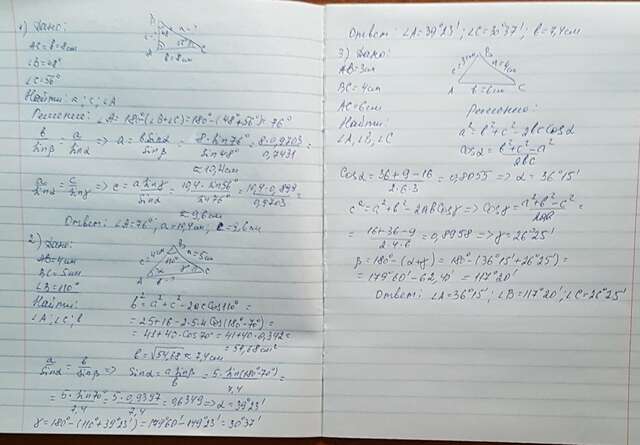 1) Дано:
AC = b = 8см
∠B = 48°
∠C = 56°
Найти: a; c; ∠A
Решение: ∠A = 180°-(∠B+∠C)=180°-(48°+56°)=76°
b/sinβ = a/sinα => a = b sinα/sinβ = 8·sin76°/sin48° = 8·0,9703/0,7431 =
≈ 10,4см
a/sinα = c/sinγ => c = a sinγ/sinα = 10,4·sin56°/sin76° = 10,4·0,829/0,9703 =
≈ 8,6см
Ответ: ∠A=76°; a=10,4см, c=8,6см
2) Дано:
AB = 4см
BC = 5см
∠B = 110°
Найти:
∠A; ∠C; b
b² = a² + c² - 2ac Cos110° =
= 25+16-2·5·4 Cos(180°-70°) =
= 41+40·Cos70° = 41+40·0,342 =
= 54,68см²
b = √54,68 ≈ 7,4см
a/sinα = b/sinβ => sinα = a sinβ/b = 5·sin(180°-70°)/7,4 =
= 5·sin70°/7,4 = 5·0,9397/7,4 = 0,6349 => α = 39°23'
γ = 180°-(110°+39°23') = 179°60'-149°23' = 30°37'
Ответ: ∠A=39°23'; ∠C=30°37'; b=7,4см
3) Дано:
AB = 3см
BC = 4см
AC = 6см
Найти:
∠A, ∠B, ∠C
c=3см
a=4см
b=6см
Решение:
a² = b² + c² - 2bc Cosα
cosα = b²+c²-a²/2bc
Cosα = 36+9-16/2·6·3 = 0,8055 => α = 36°15'
c² = a² + b² - 2ab Cosγ => Cosγ = a²+b²-c²/2ab =
= 16+36-9/2·4·6 = 0,8958 => γ = 26°25'
β = 180°-(α+γ) = 180°-(36°15'+26°25') =
= 179°60'-62°40' = 117°20'
Ответ: ∠A=36°15', ∠B=117°20', ∠C=26°25'